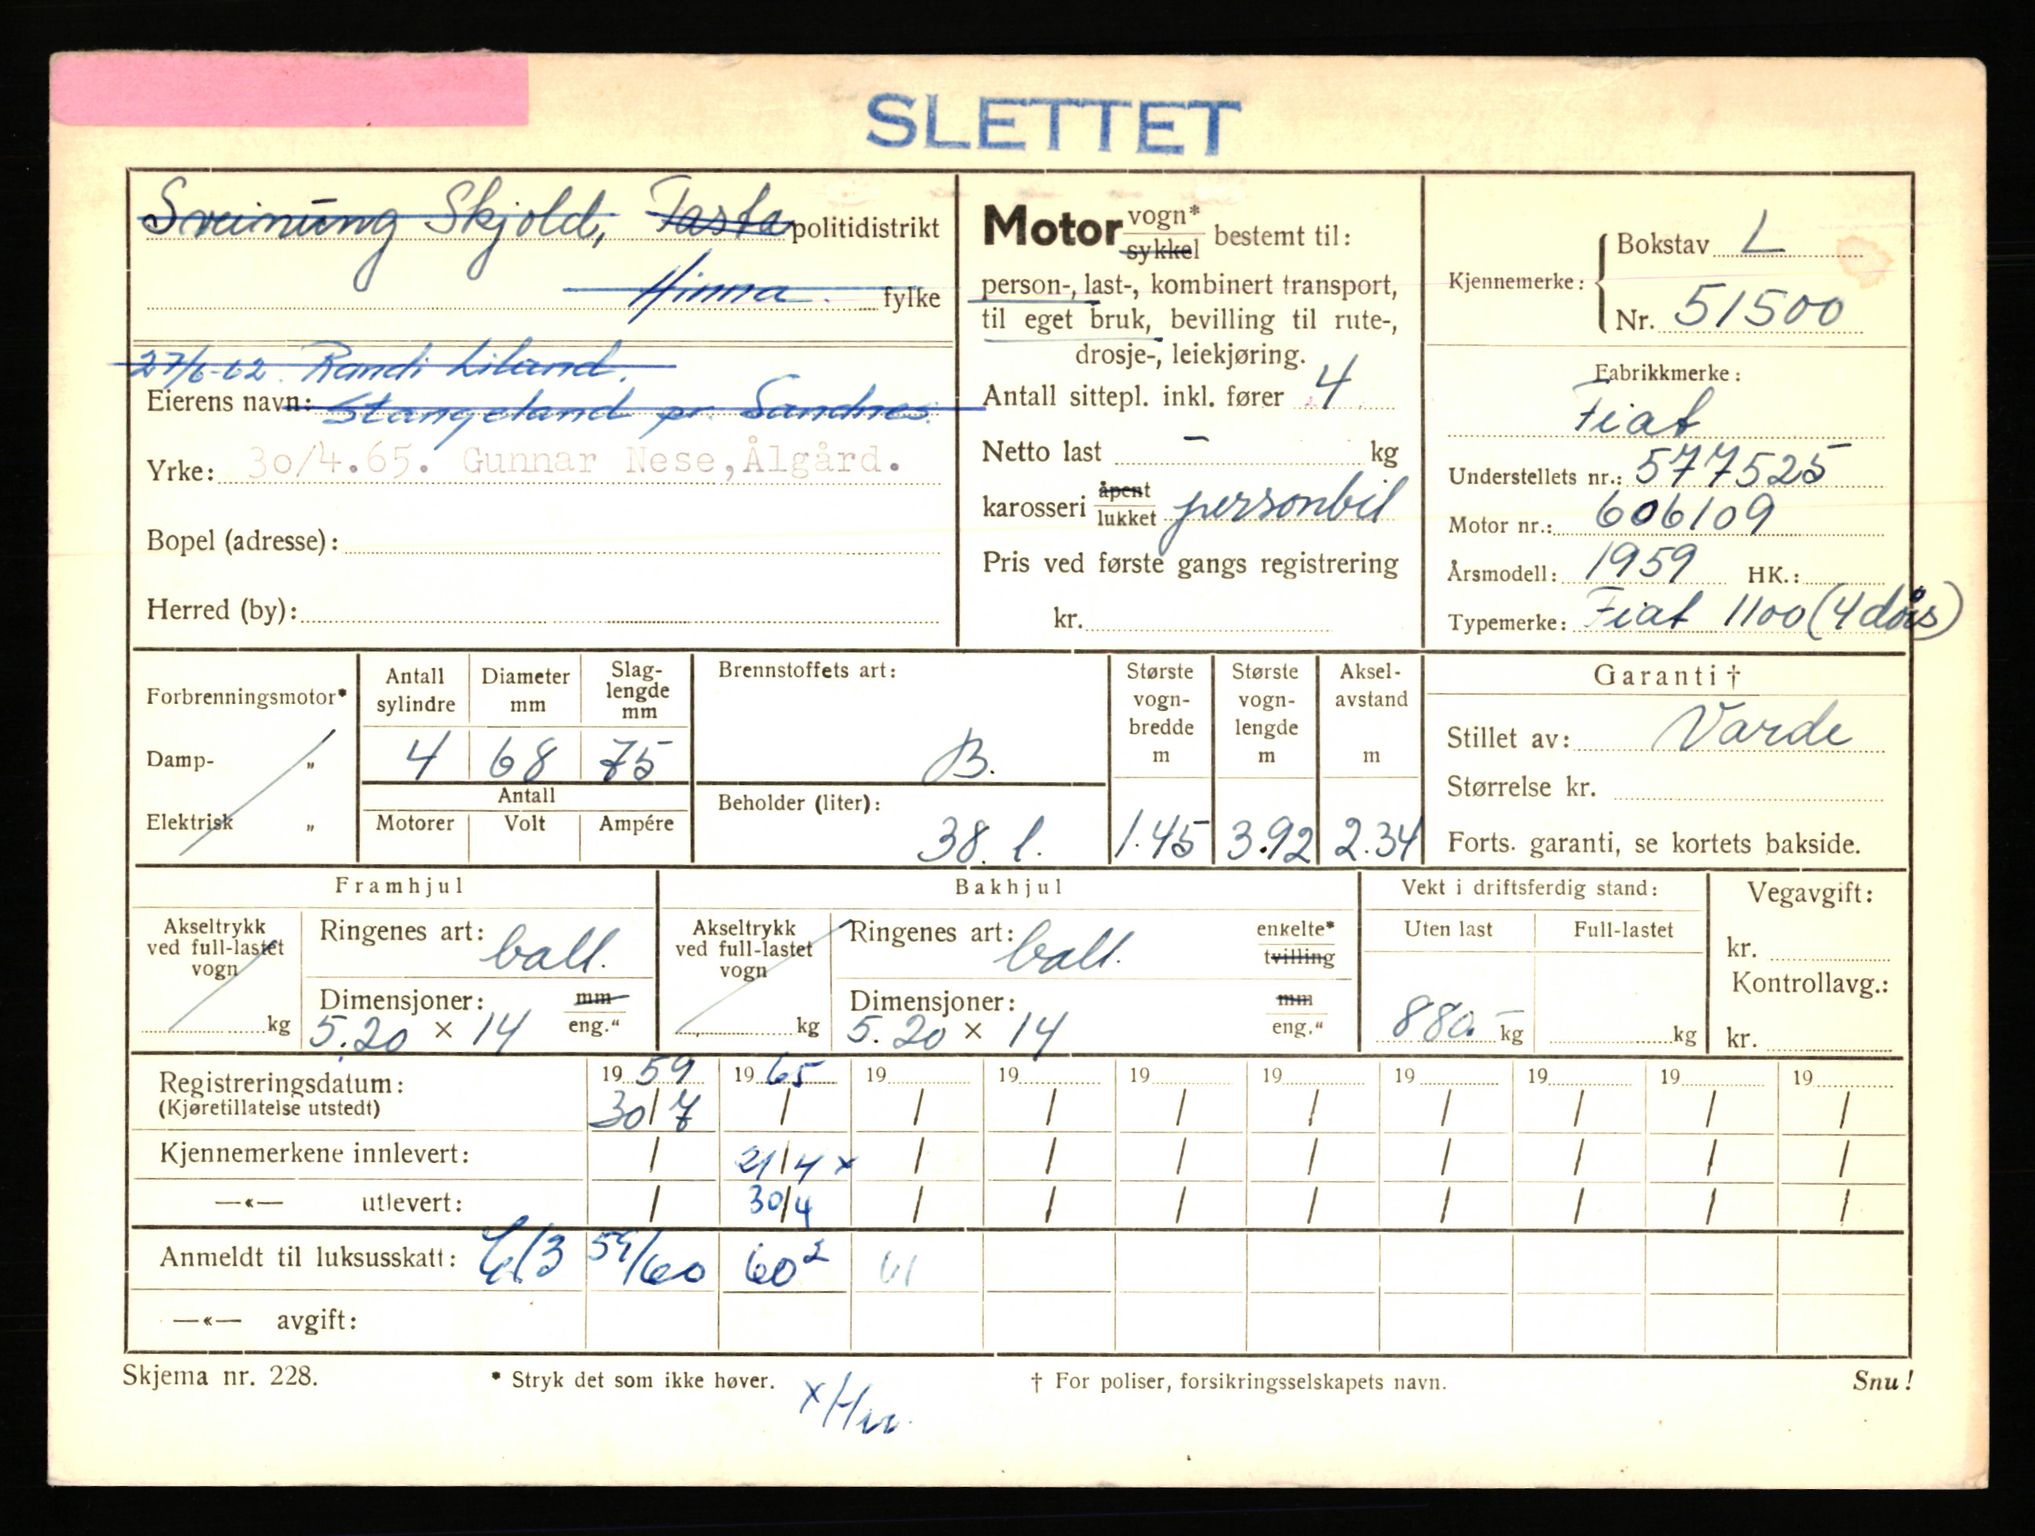 SLETTET
Sveinung Skjold, Tasta politidistrikt
Hinna. fylke
27/6-62. Randi Liland.
Eierens navn: Stangeland pr. Sandnes.
Yrke: 30/4.65. Gunnar Nese, Ålgård.
Bopel (adresse):
Herred (by):
Motor vogn* sykkel bestemt til:
person-, last-, kombinert transport,
til eget bruk, bevilling til rute-,
drosje-, leiekjøring.
Antall sittepl. inkl. fører 4
Netto last – kg
karosseri åpent lukket personbil
Pris ved første gangs registrering
kr.
Kjennemerke: Bokstav L
Nr. 51500
Fabrikkmerke:
Fiat
Understellets nr.: 577525
Motor nr.: 606109
Årsmodell: 1959 HK.:
Typemerke: Fiat 1100 (4 dørs)
Forbrenningsmotor*
Damp- „
Elektrisk „
Antall sylindre
Diameter mm
Slag-lengde mm
4 68 75
Antall
Motorer Volt Ampére
Brennstoffets art:
B.
Beholder (liter):
38. l.
Største vogn-bredde m
1.45
Største vogn-lengde m
3.92
Aksel-avstand m
2.34
Garanti †
Stillet av: Varde
Størrelse kr.
Forts. garanti, se kortets bakside.
Framhjul
Akseltrykk
ved full-lastet
vogn
kg
Ringenes art: ball.
Dimensjoner: mm eng."
5.20 × 14
Bakhjul
Akseltrykk
ved full-lastet
vogn
kg
Ringenes art: ball. enkelte* tvilling
Dimensjoner: mm eng."
5.20 × 14
Vekt i driftsferdig stand:
Uten last Full-lastet
880.– kg kg
Vegavgift:
kr.
Kontrollavg.:
kr.
Registreringsdatum: 19 59 19 65 19 19 19 19 19 19 19 19
(Kjøretillatelse utstedt) 30/7 / / / / / / / / /
Kjennemerkene innlevert: / 21/4 x / / / / / / / /
—«— utlevert: / 30/4 / / / / / / / /
Anmeldt til luksusskatt: 59/60 60² 61
—«— avgift:
Skjema nr. 228. * Stryk det som ikke høver. † For poliser, forsikringsselskapets navn. Snu!